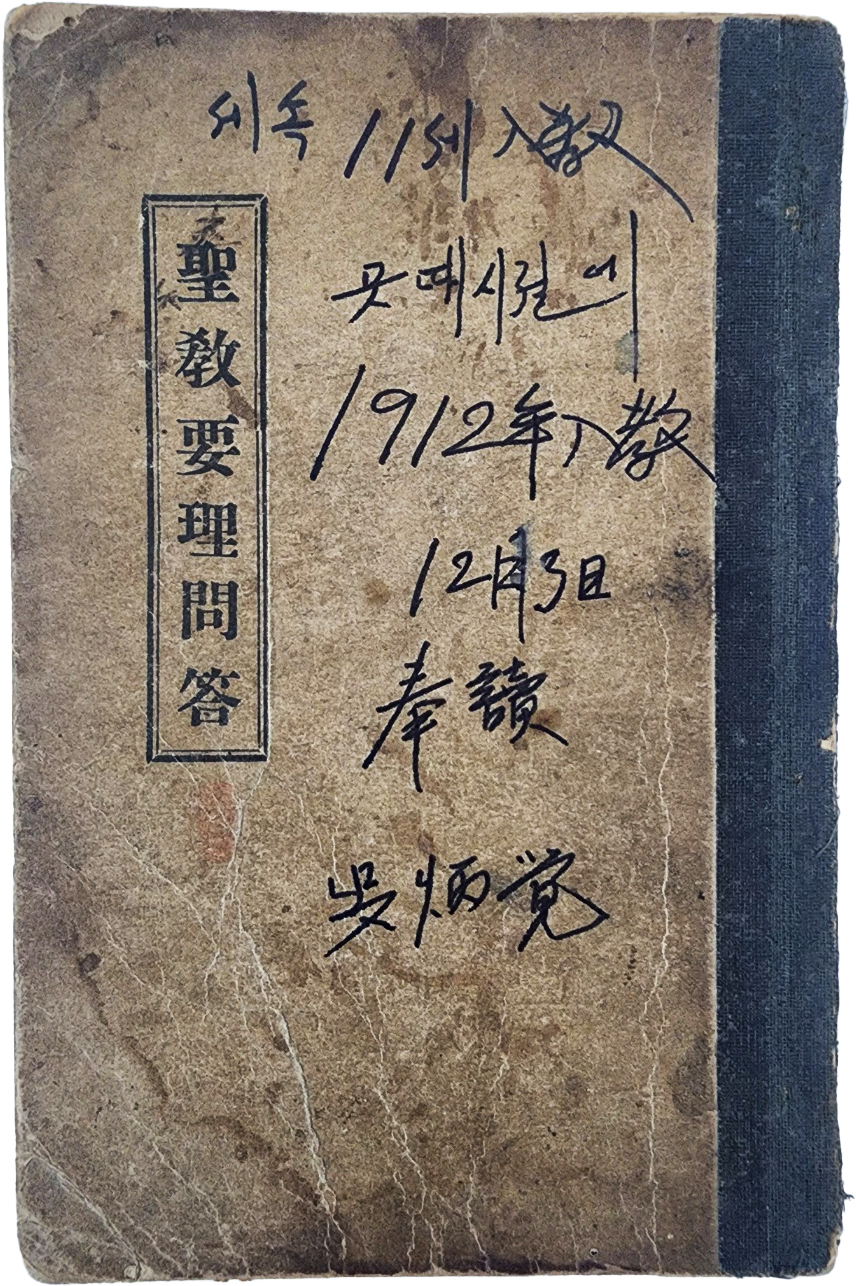 聖敎要理問答
세속 11세 入教
시절에
1912年入教
12月3日
奉讀
吳炳覚